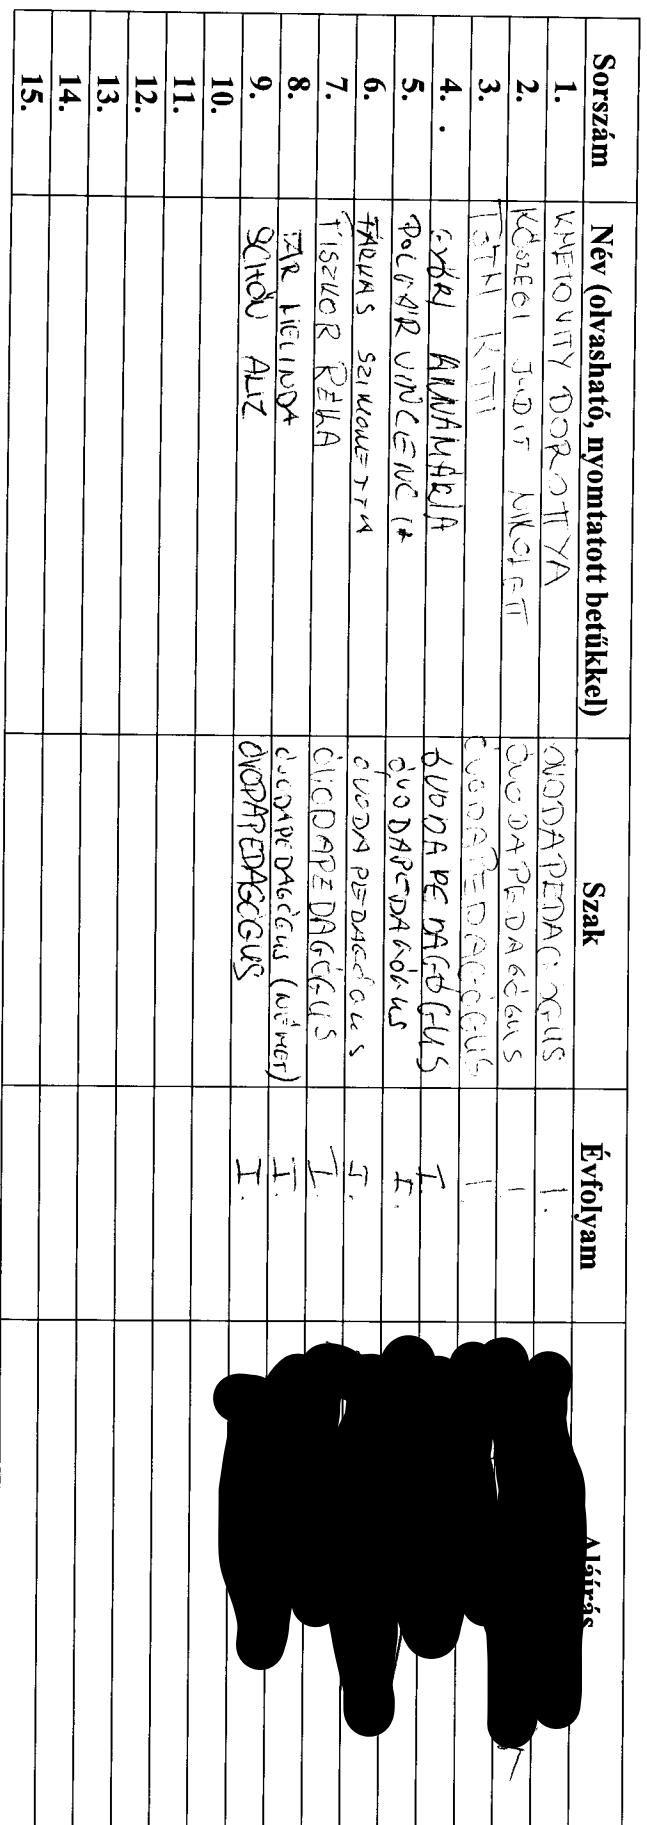 Sorszám Név (olvasható, nyomtatott betűkkel) Szak Évfolyam Aláírás
1. KMETOVITY DOROTTYA ÓVODAPEDAGÓGUS 1.
2. KŐSZEGI JUDIT NIKOLETT ÓVODAPEDAGÓGUS 1
3. TÓTH KITTI ÓVODAPEDAGÓGUS 1
4. . GYŐRI ANNAMÁRIA ÓVODAPEDAGÓGUS I.
5. POLGÁR VINCENCIA ÓVODAPEDAGÓGUS I.
6. FARKAS SZIMONETTA ÓVODAPEDAGÓGUS I.
7. TISZKOR RÉKA ÓVODAPEDAGÓGUS I.
8. MELINDA ÓVODAPEDAGÓGUS (NÉMET) I.
9. SCHÖN ALIZ ÓVODAPEDAGÓGUS I.
10.
11.
12.
13.
14.
15.